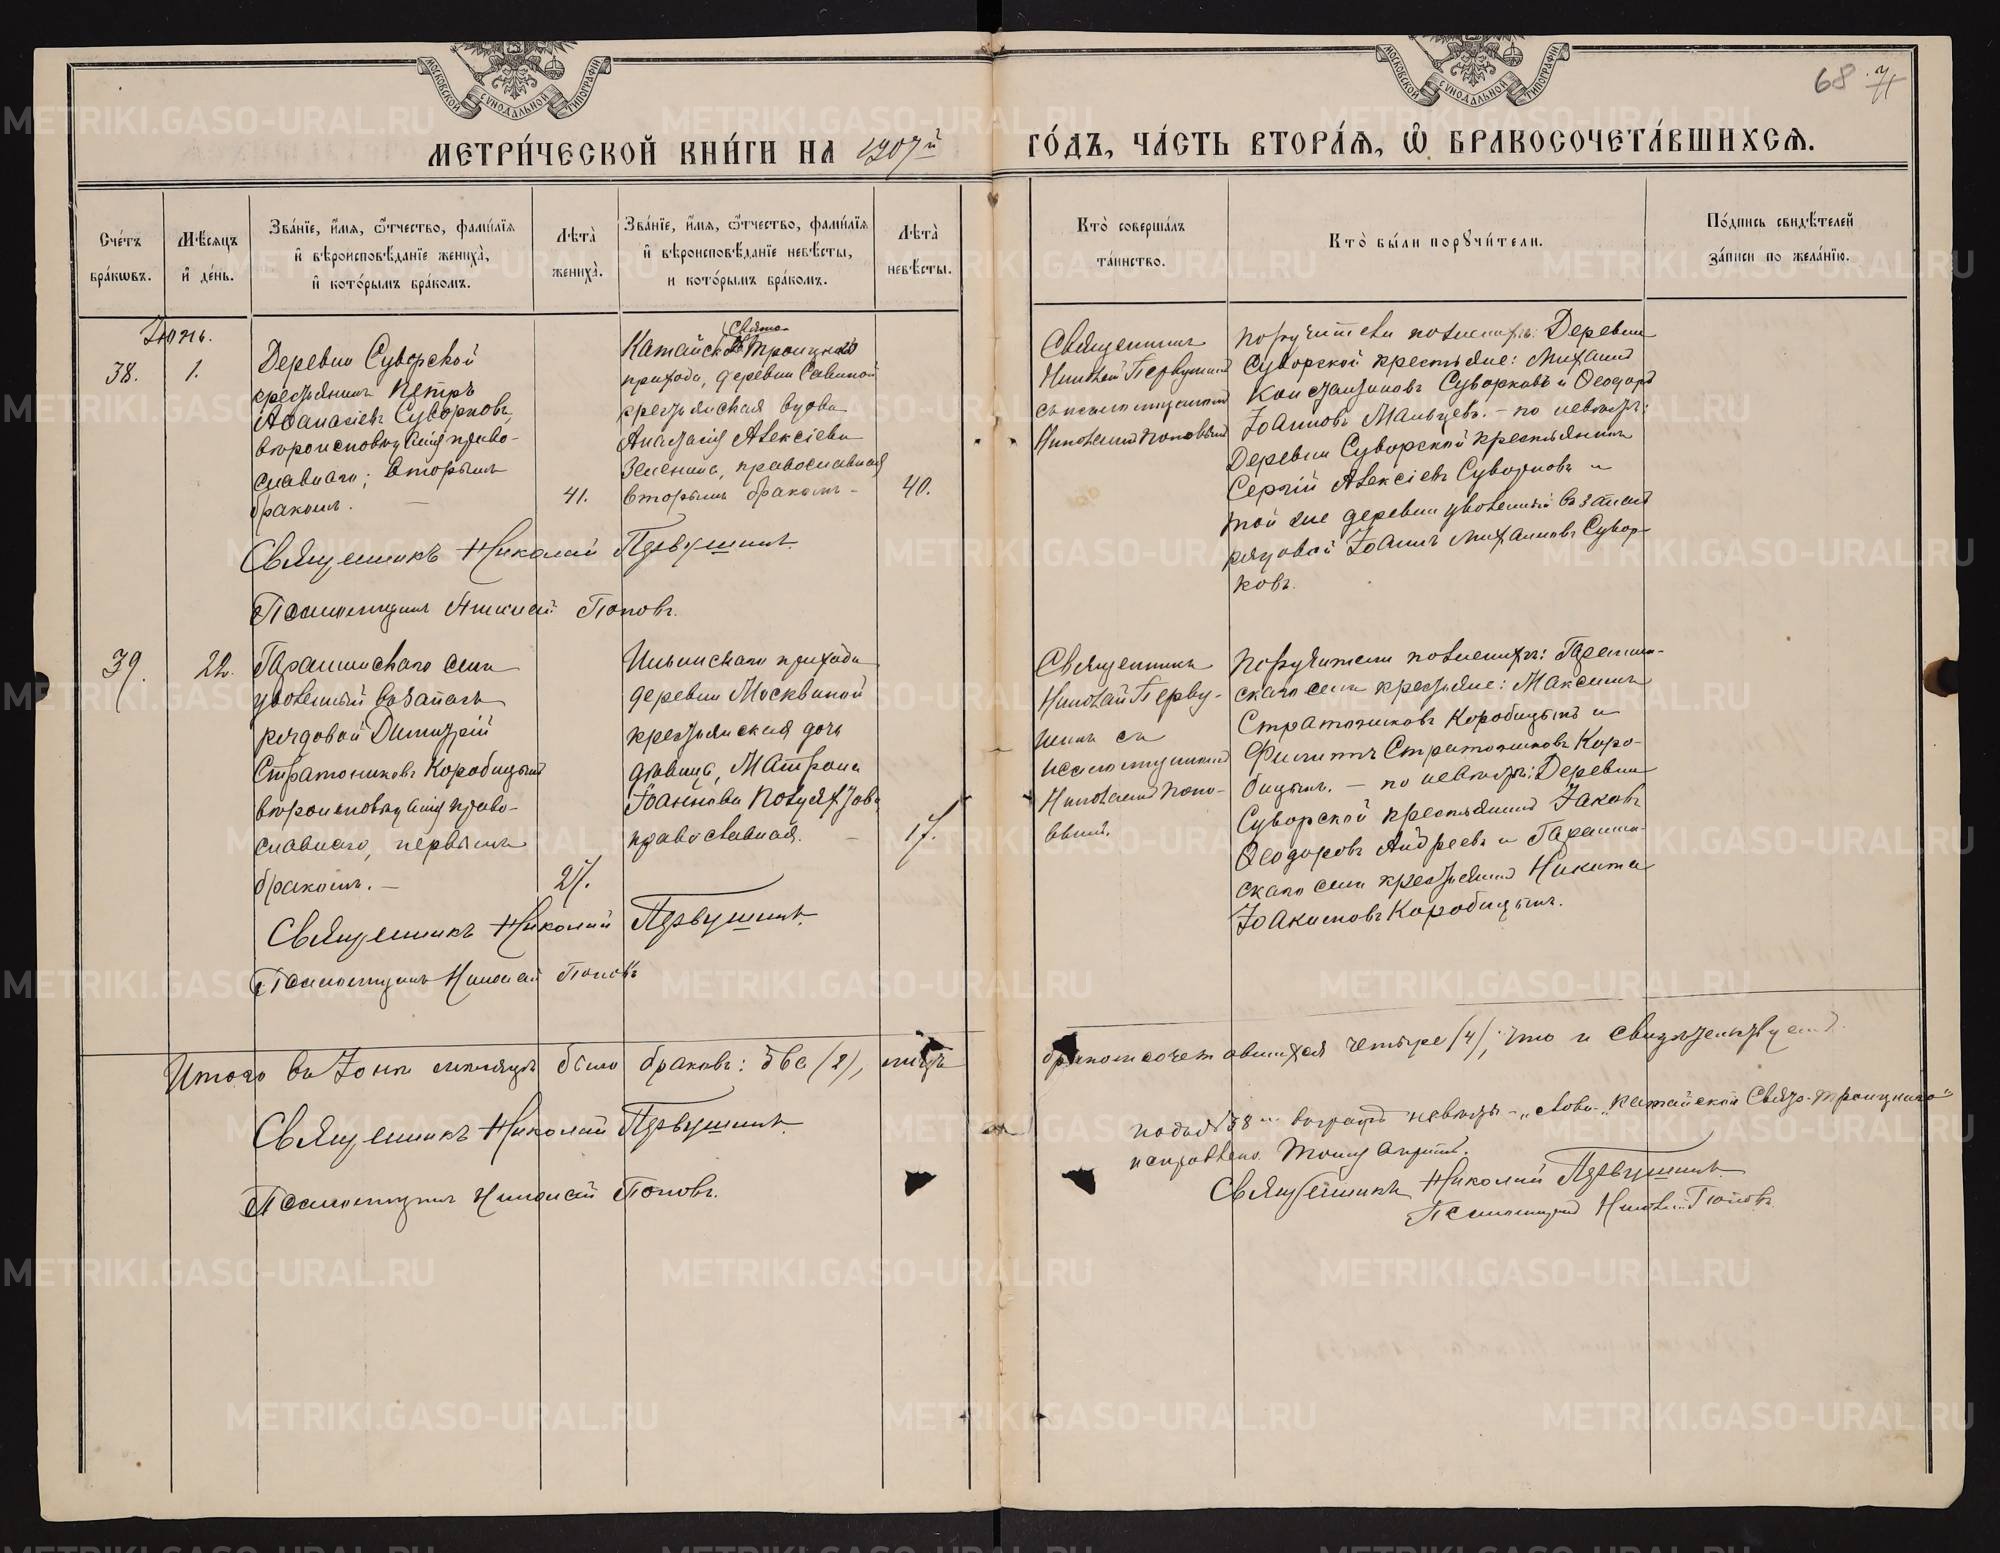 МОСКОВСКОЙ СѴНОДАЛЬНОЙ ТИПОГРАФІИ
МОСКОВСКОЙ СѴНОДАЛЬНОЙ ТИПОГРАФІИ
68
МЕТРИ́ЧЕСКОЙ КНИ́ГИ НА 1907й
ГО́ДЪ, ЧА́СТЬ ВТОРА́Ѧ, Ѡ҆ БРАКОСОЧЕТА́ВШИХСѦ.
Сче́тъ бра́кѡвъ.
Мѣ́сѧцъ и҆ де́нь.
Зва́нїе, и҆́мѧ, ѻ҆́тчество, фами́лїѧ и҆ вѣроисповѣ́данїе жениха̀, и҆ кото́рымъ бра́комъ.
Лѣта̀ жениха̀.
Зва́нїе, и҆́мѧ, ѻ҆́тчество, фами́лїѧ и҆ вѣроисповѣ́данїе невѣ́сты, и кото́рымъ бра́комъ.
Лѣта̀ невѣ́сты.
Кто̀ соверша́лъ та́инство.
Кто̀ бы́ли порꙋчи́тели.
По́дпись свидѣ́телей за́писи по жела́нїю.
Іюнь.
38.
1.
Деревни Суворской
крестьянинъ Петръ
Аѳанасіевъ Суворковъ,
вѣроисповѣданія право-
славнаго; вторымъ
бракомъ.
41.
Свято-
Катайскаго Троицкаго
прихода, деревни Савиной
крестьянская вдова
Анастасія Алексіева
Зеленина, православная
вторымъ бракомъ -
40.
Священникъ
Николай Первушинъ
съ псаломщикомъ
Николаемъ Поповымъ
Поручители по женихѣ: Деревни
Суворской крестьяне: Михаилъ
Константиновъ Суворковъ и Ѳеодоръ
Іоанновъ Мальцевъ. - по невѣстѣ:
Деревни Суворской крестьянинъ
Сергій Алексіевъ Суворковъ и
той же деревни уволенный въ запасъ
рядовой Іоаннъ Михаиловъ Сувор-
ковъ.
Священникъ Николай Первушинъ.
Псаломщикъ Николай Поповъ.
39.
22.
уволенный въ запасъ
рядовой Димитрій
Стратониковъ Коробицынъ
вѣроисповѣданія право-
славнаго, первымъ
бракомъ. -
27.
Ильинскаго прихода
деревни Москвиной
крестьянская дочь
дѣвица, Матрона
Іоаннова
православная. -
17.
Священникъ
Николай Перву-
шинъ съ
псаломщикомъ
Николаемъ Попо-
вымъ.
Стратониковъ Коробицынъ и
Филиппъ Стратониковъ Коро-
бицынъ. - по невѣстѣ: Деревни
Суворской крестьянинъ Іаковъ
скаго села крестьянинъ Никита
Іоакимовъ Коробицынъ.
Священникъ Николай Первушинъ.
Псаломщикъ Николай Поповъ
Итого въ Іюнѣ мѣсяцѣ было браковъ: два /2/, лицъ
бракомсочетавшихся четыре /4/, что и свидѣтельствуемъ.
Священникъ Николай Первушинъ.
Псаломщикъ Николай Поповъ.
подъ № 38м въ графѣ невѣсты - „слово „Катайской Свято-Троицкаго"
исправлено.
Священникъ Николай Первушинъ
Псаломщикъ Николай Поповъ.